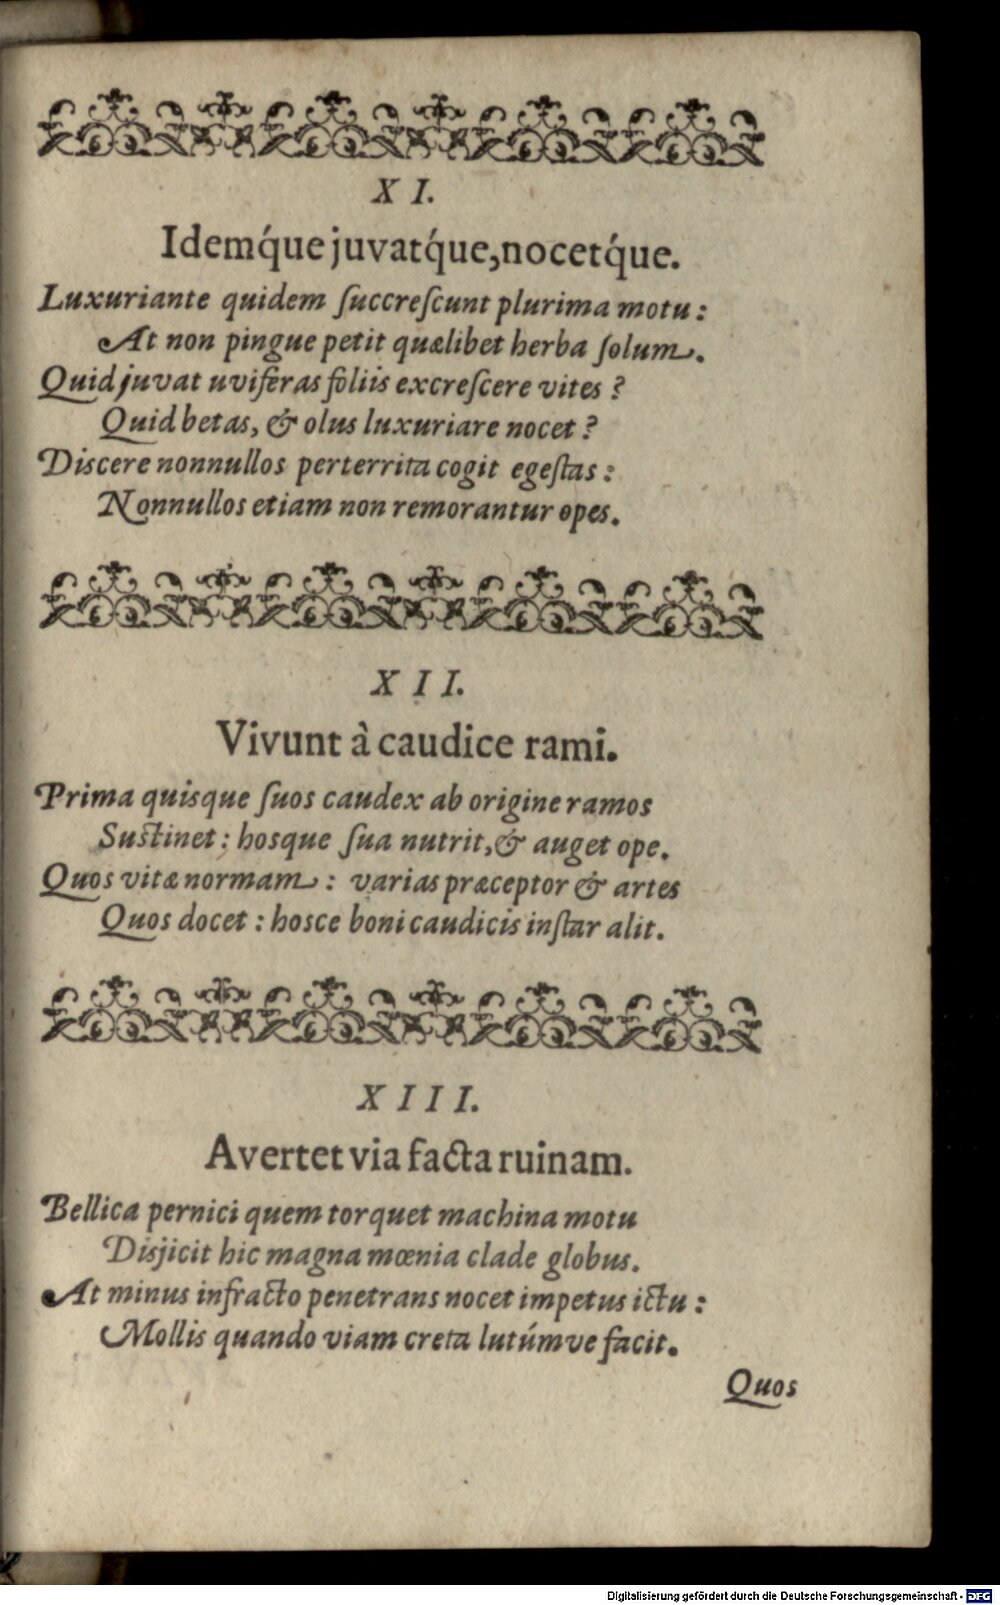 X I.
Idemq́ue juvatq́ue, nocetq́ue.
Luxuriante quidem ſuccreſcunt plurima motu:
At non pingue petit quælibet herba ſolum.
Quid juvat uviferas foliis excreſcere vites?
Quid betas, & olus luxuriare nocet?
Discere nonnullos perterrita cogit egeſtas:
Nonnullos etiam non remorantur opes.
X I I.
Vivunt à caudice rami.
Prima quisque ſuos caudex ab origine ramos
Sustinet: hosque ſua nutrit, & auget ope.
Quos vitæ normam: varias præceptor & artes
Quos docet: hosce boni caudicis inſtar alit.
X I I I.
Avertet via facta ruinam.
Bellica pernici quem torquet machina motu
Disjicit hic magna mœnia clade globus.
At minus infracto penetrans nocet impetus ictu:
Mollis quando viam creta lutúmve facit.
Quos
Digitalisierung gefördert durch die Deutsche Forschungsgemeinschaft - DFG